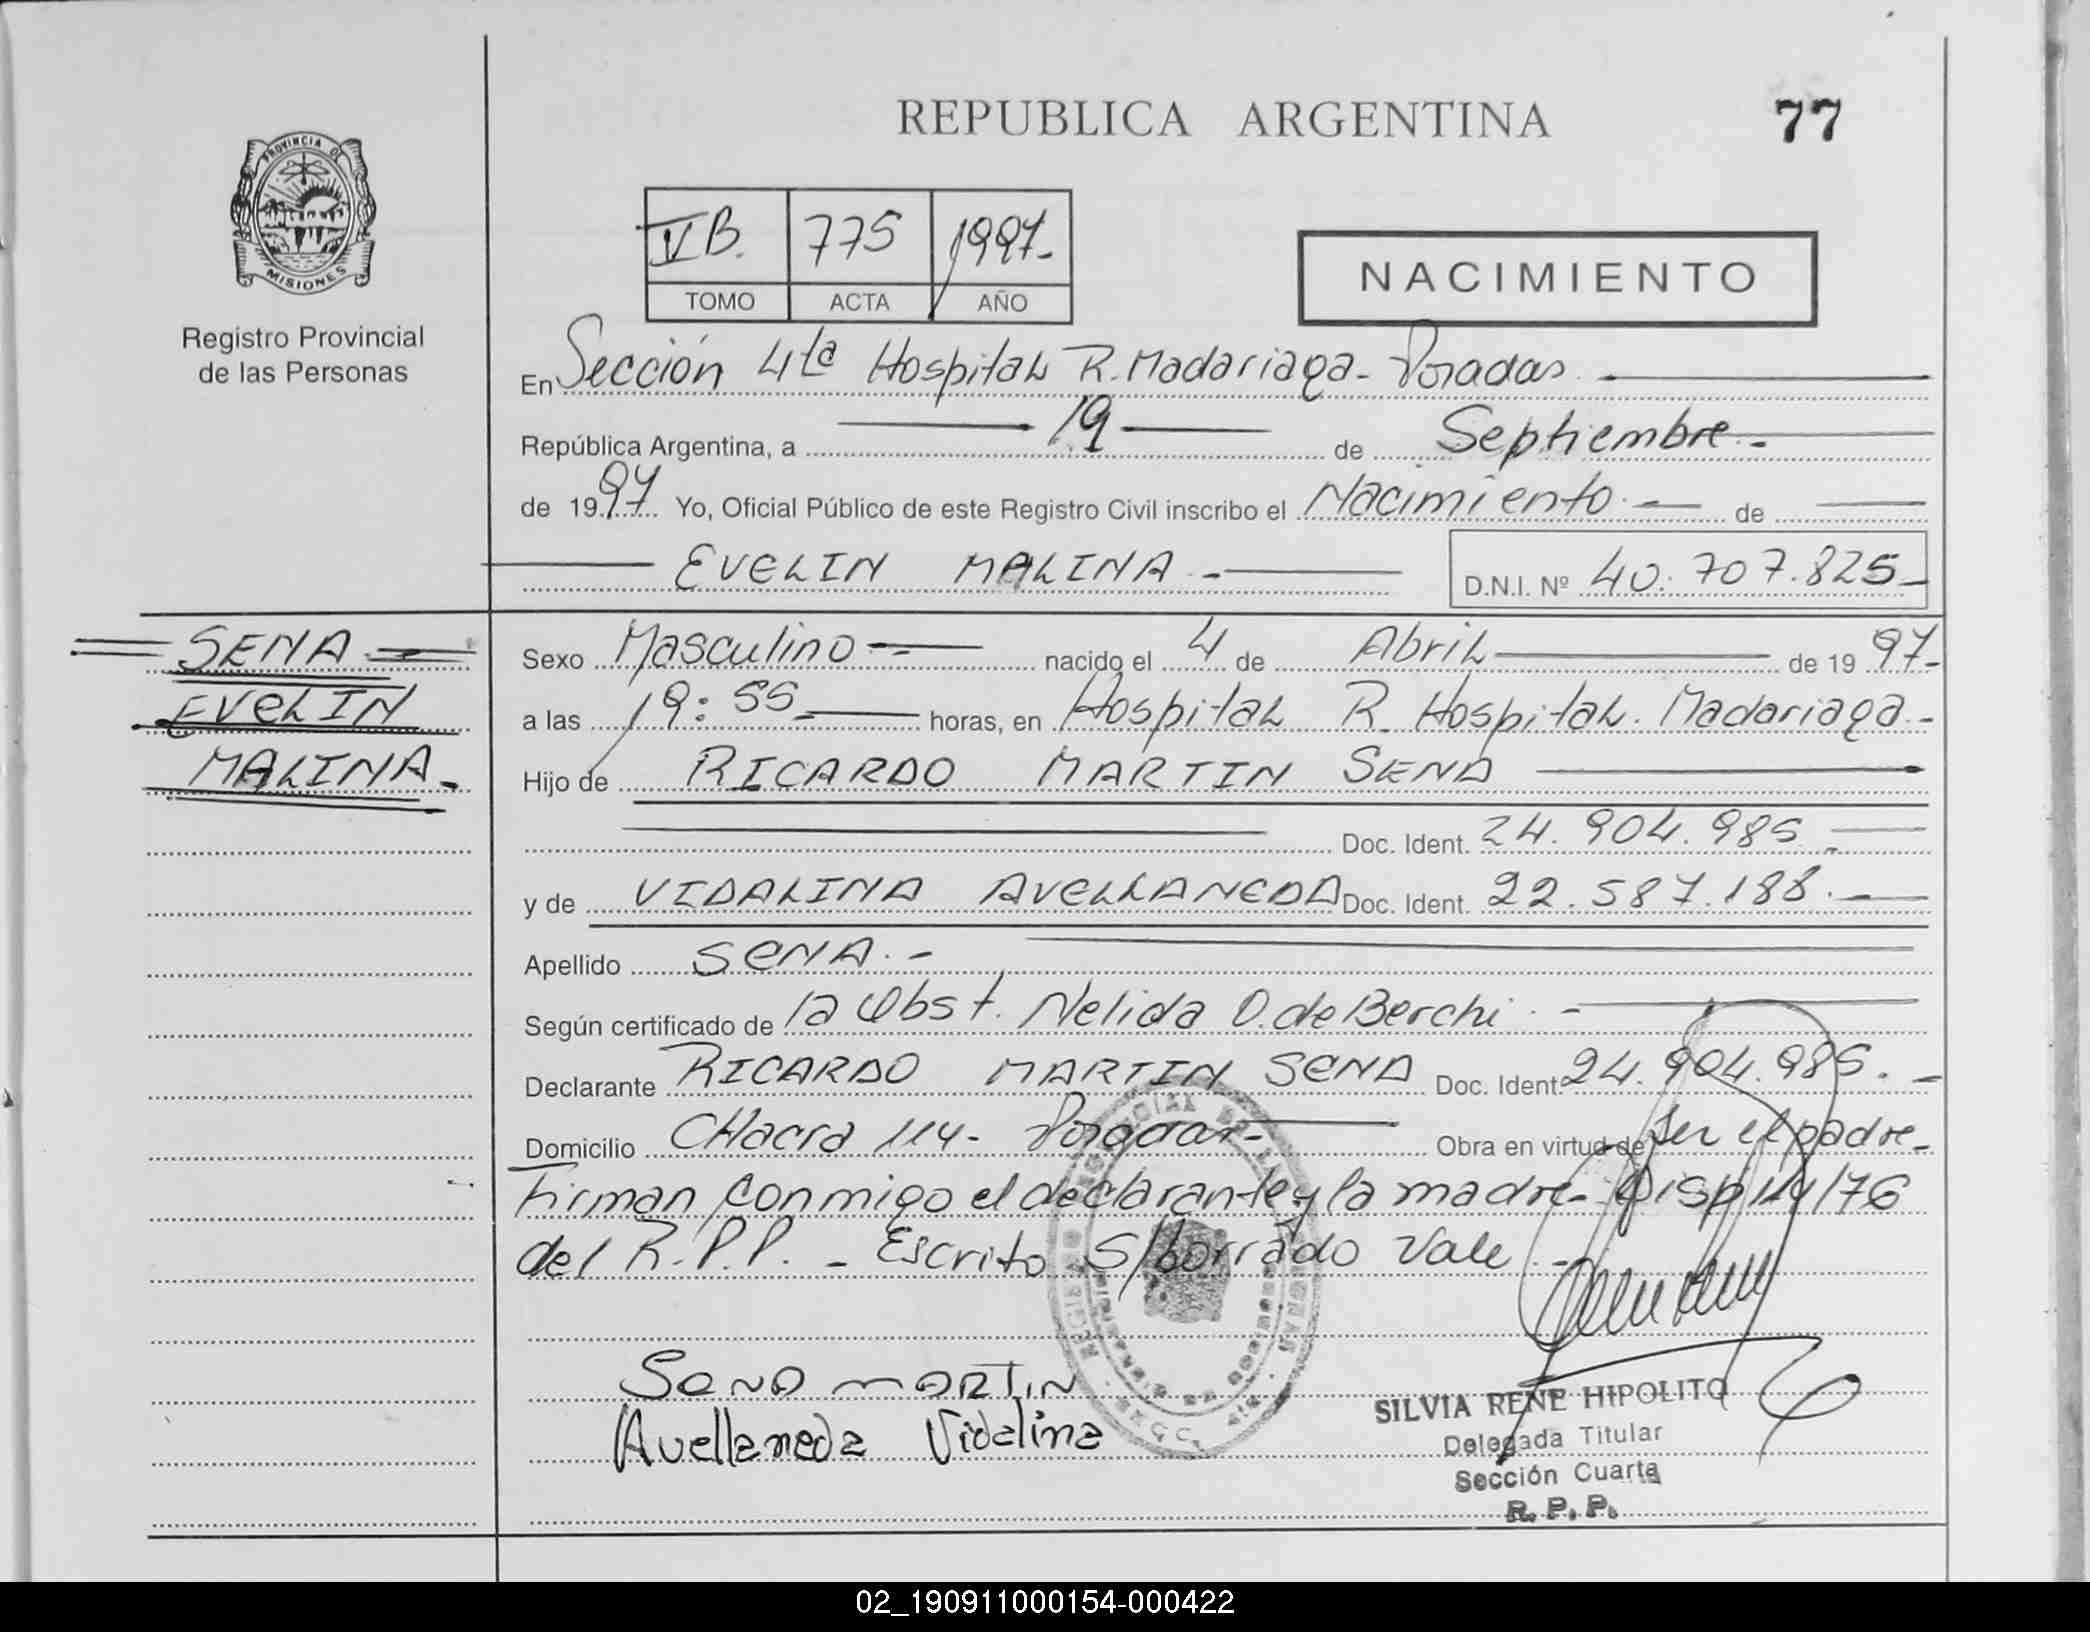 REPUBLICA ARGENTINA
77
PROVINCIA DE
MISIONES
Registro Provincial
de las Personas
VB. 775 1997.-
TOMO ACTA AÑO
NACIMIENTO
En Sección 4ta Hospital R. Madariaga - Posadas
República Argentina, a 19 de Septiembre.-
de 1997 Yo, Oficial Público de este Registro Civil inscribo el Nacimiento.- de
EVELIN MALINA.- D.N.I. Nº 40.707.825-
SENA
EVELIN
MALINA.-
Sexo Masculino.- nacido el 4 de Abril de 1997.-
a las 19:55 horas, en Hospital R. Hospital. Madariaga.-
Hijo de RICARDO MARTIN SENA
Doc. Ident. 24.904.985.-
y de VIDALINA AVELLANEDA Doc. Ident. 22.587.188.-
Apellido SENA.-
Según certificado de la Obst. Nelida O. de Berchi.-
Declarante RICARDO MARTIN SENA Doc. Ident. 24.904.985.-
Domicilio CHacra 114- Posadas- Obra en virtud de Ser el padre.-
Firman conmigo el declarante y la madre- Disp 114/76
del R.P.P. - Escrito S/borrado Vale.-
SENA MARTIN
Avellaneda Vidalina
SILVIA RENE HIPOLITO
Delegada Titular
Sección Cuarta
R. P. P.
02_190911000154-000422